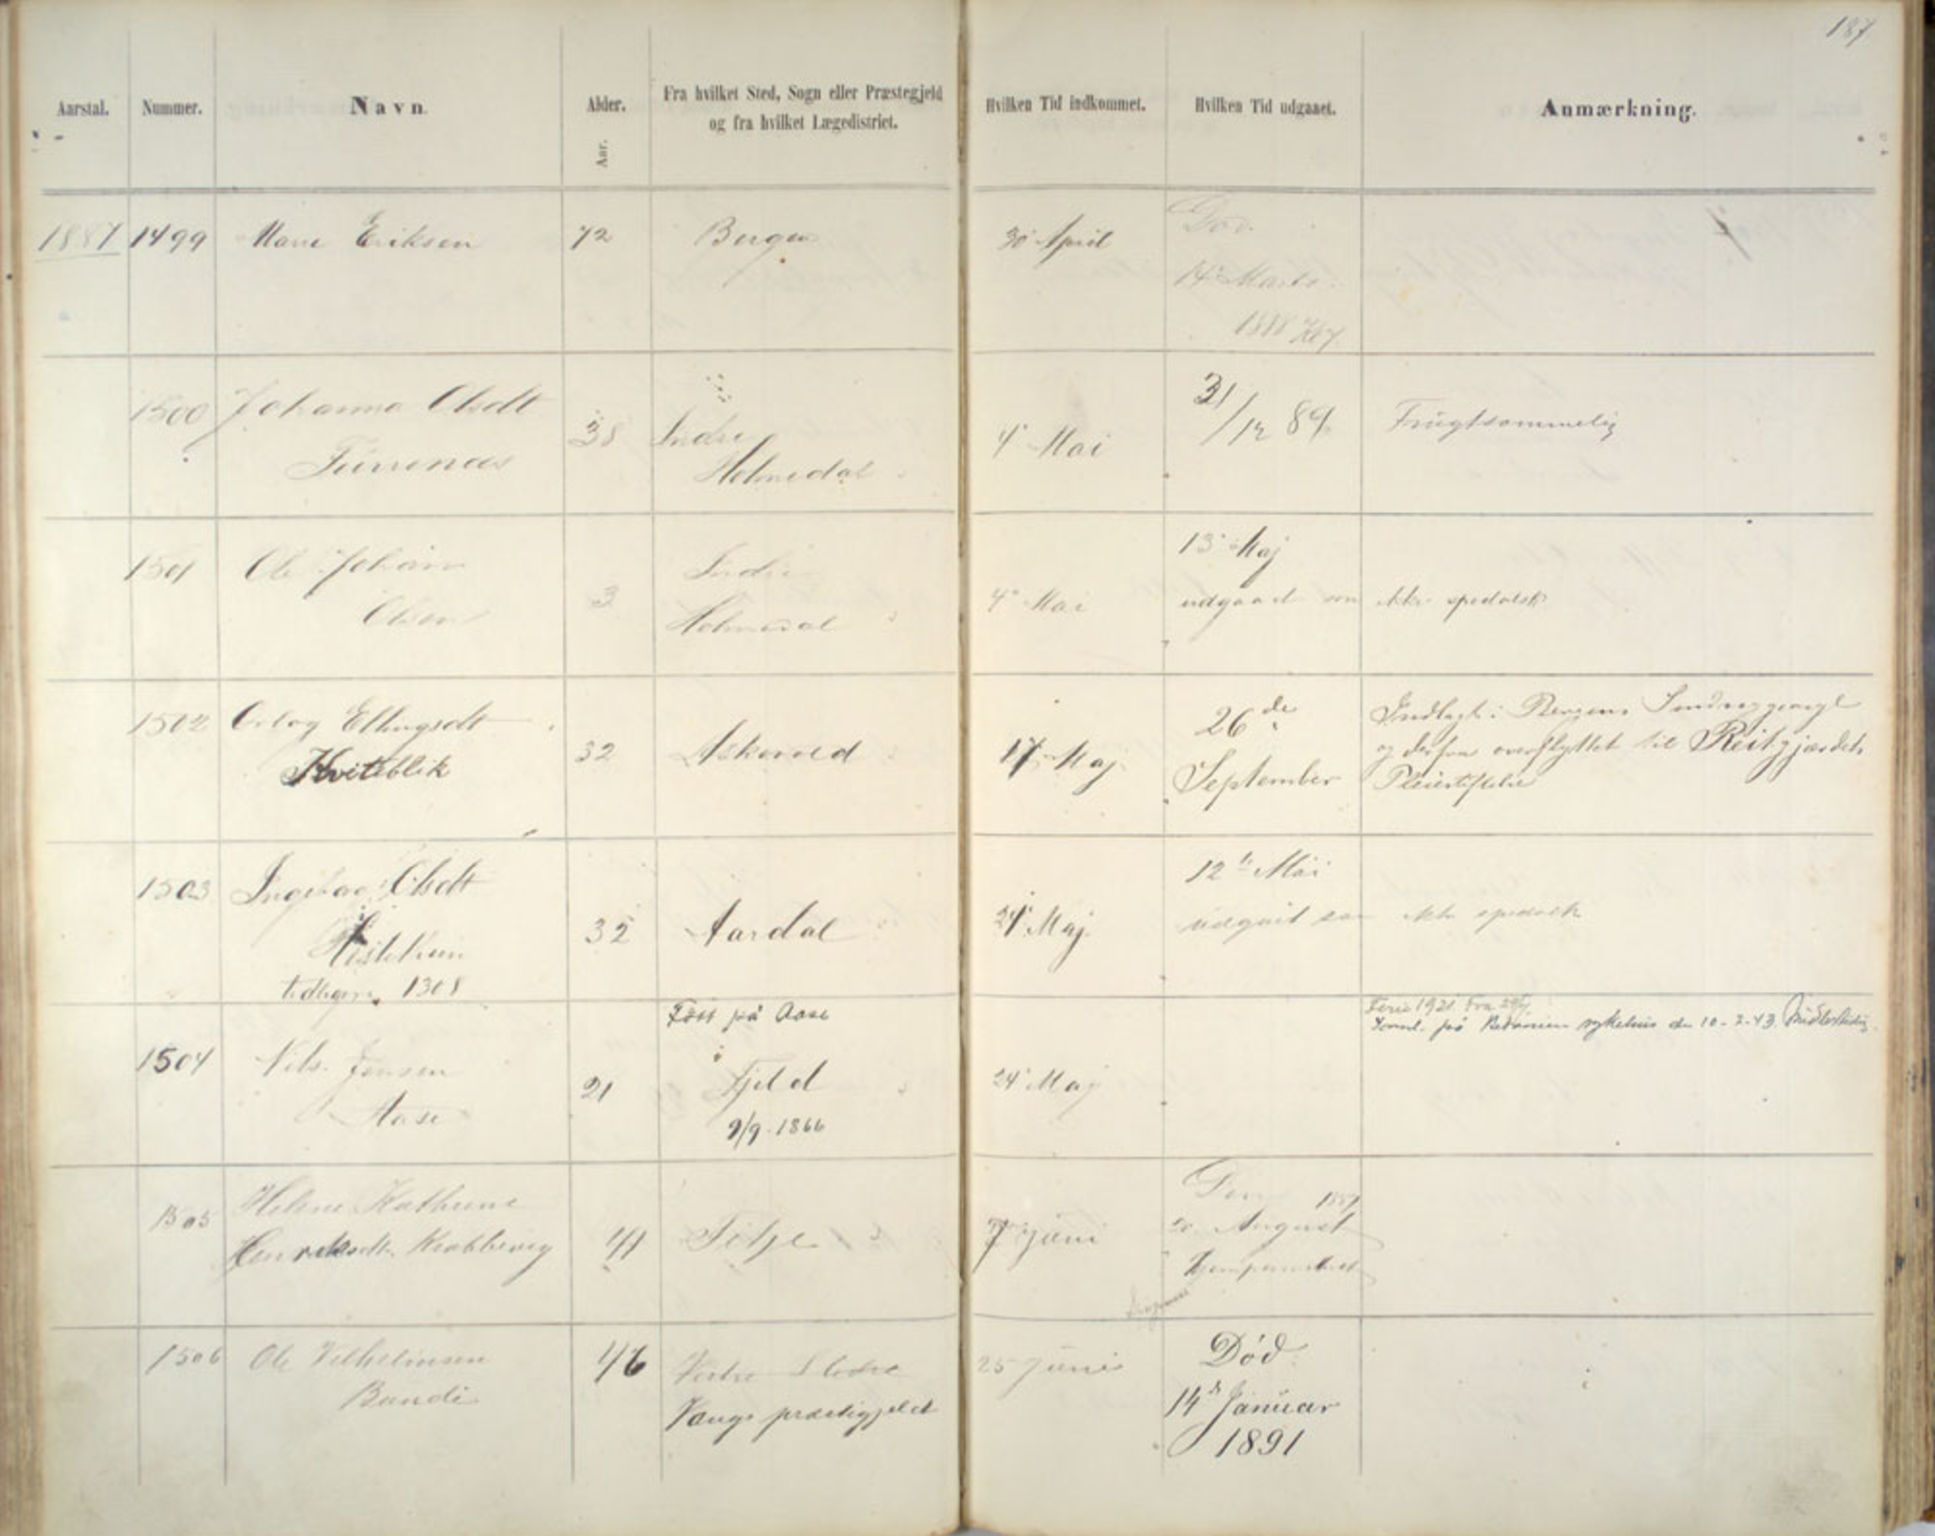 187
Aarstal. Nummer. Navn. Alder. Fra hvilket Sted, Sogn eller Præstegjeld Hvilken Tid indkommet. Hvilken Tid udgaaet. Anmærkning.
og fra hvilket Lægedistrict.
Aar.
1887 1499 Eriksen 72 Bergen 30 April Død
14 Marts
1888
1500 Johanna Olsdt 38 Indre 4 Mai 31/12 89. Frugtsommelig
Holmedal
1501 Ole Johan 3 Indre 4 Mai 13 Maj
Olsen Holmedal udgaaet som ikke spedalsk
1502 Ellingsdt 32 Askevold 17 Maj 26de Indlagt i Bergens
Kviteblik September og derfra overflyttet til Reitgjærdets
Pleiestiftelse
1503 Olsdt 32 Aardal 24 Maj 12te Mai
udgaaet som ikke spedalsk
tidligere 1308
Født på Aase Ferie 1921. Fra
på Betanien sykehus den 10-3-43.
1504 Nils Jensen 21 Fjeld 24 Maj
Aase 9/9-1866
1505 Helene Kathrine 41 7 Juni 1887
Henriksdtr. Krabbevig 20 August
1506 Ole Vilhelmsen 46 Vestre Slidre 25 Juni Død
Vangs præstegjeld 14de Januar
1891